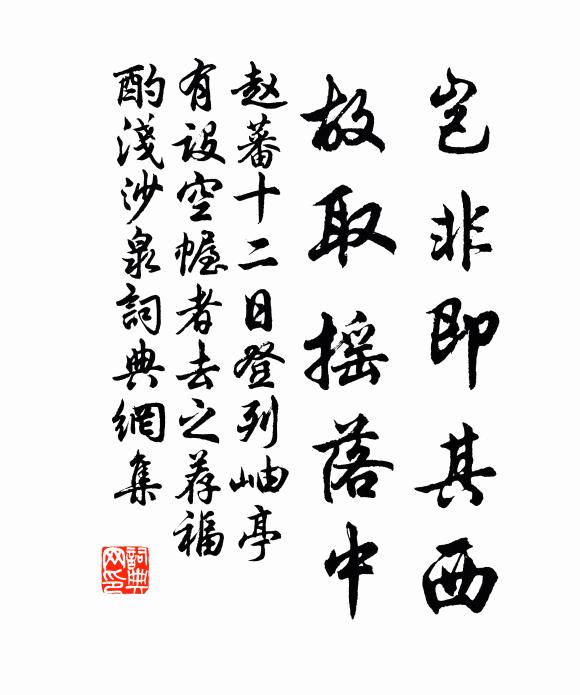 岂非即其西
故取摇落中
赵蕃十二日登列岫亭
有设空幄者去之荐福
酌淺沙泉詞典網集
詞典网印